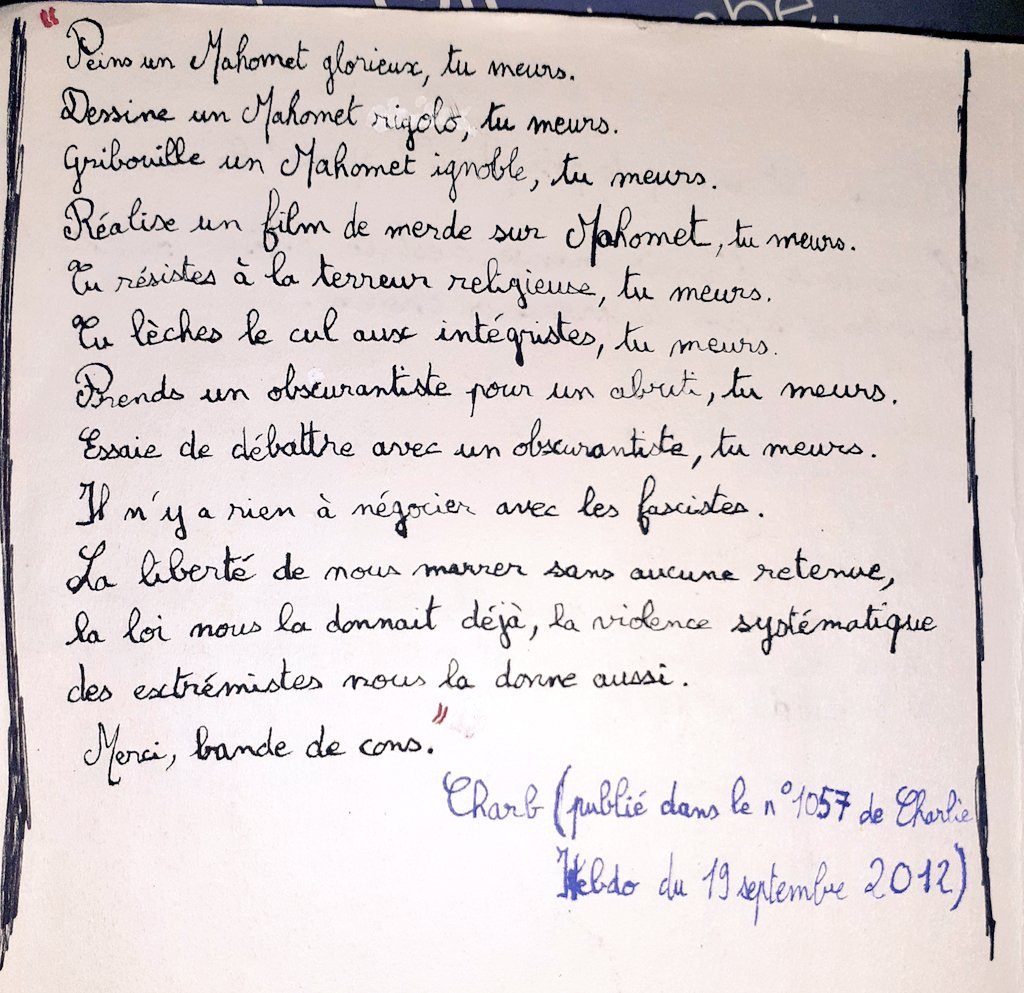 "Peins un Mahomet glorieux, tu meurs.
Dessine un Mahomet rigolo, tu meurs.
Gribouille un Mahomet ignoble, tu meurs.
Réalise un film de merde sur Mahomet, tu meurs.
Tu résistes à la terreur religieuse, tu meurs.
Tu lèches le cul aux intégristes, tu meurs.
Prends un obscurantiste pour un abruti, tu meurs.
Essaie de débattre avec un obscurantiste, tu meurs.
Il n'y a rien à négocier avec les fascistes.
La liberté de nous marrer sans aucune retenue,
la loi nous la donnait déjà, la violence systématique
des extrémistes nous la donne aussi.
Merci, bande de cons."
Charb (publié dans le n°1057 de Charlie
Hebdo du 19 septembre 2012)